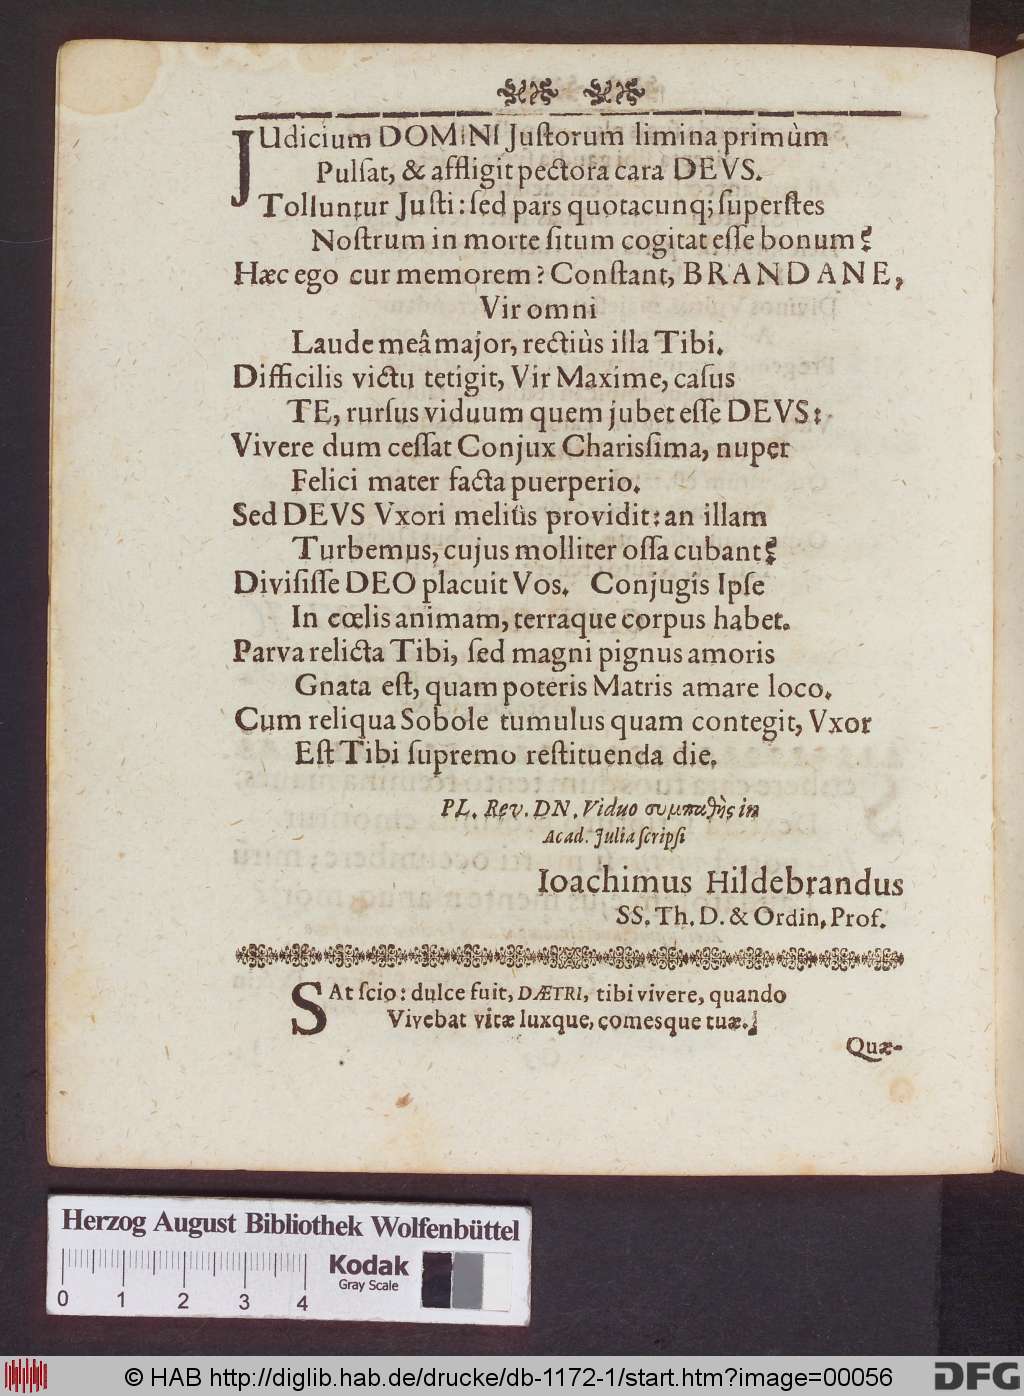 JUdicium DOMINI Juſtorum limina primùm
Pulſat, & affligit pectora cara DEVS.
Tolluntur Juſti: ſed pars quotacunq; ſuperſtes
Noſtrum in morte ſitum cogitat eſſe bonum?
Hæc ego cur memorem? Conſtant, BRANDANE,
Vir omni
Laude meâ major, rectiùs illa Tibi.
Difficilis victu tetigit, Vir Maxime, caſus
TE, rurſus viduum quem jubet eſſe DEVS:
Vivere dum ceſſat Conjux Chariſſima, nuper
Felici mater facta puerperio.
Sed DEVS Vxori meliùs providit: an illam
Turbemus, cujus molliter oſſa cubant?
Diviſiſſe DEO placuit Vos. Conjugis Ipſe
In cœlis animam, terraque corpus habet.
Parva relicta Tibi, ſed magni pignus amoris
Gnata eſt, quam poteris Matris amare loco.
Cum reliqua Sobole tumulus quam contegit, Vxor
Eſt Tibi ſupremo reſtituenda die.
PL. Rev. DN. Viduo συμπαθὴς in
Acad. Julia ſcripſi
Ioachimus Hildebrandus
SS. Th. D. & Ordin. Prof.
SAt ſcio: dulce fuit, DÆTRI, tibi vivere, quando
Vivebat vitæ luxque, comesque tuæ.
Quæ-
Herzog August Bibliothek Wolfenbüttel
Kodak
Gray Scale
0 1 2 3 4
© HAB http://diglib.hab.de/drucke/db-1172-1/start.htm?image=00056
DFG